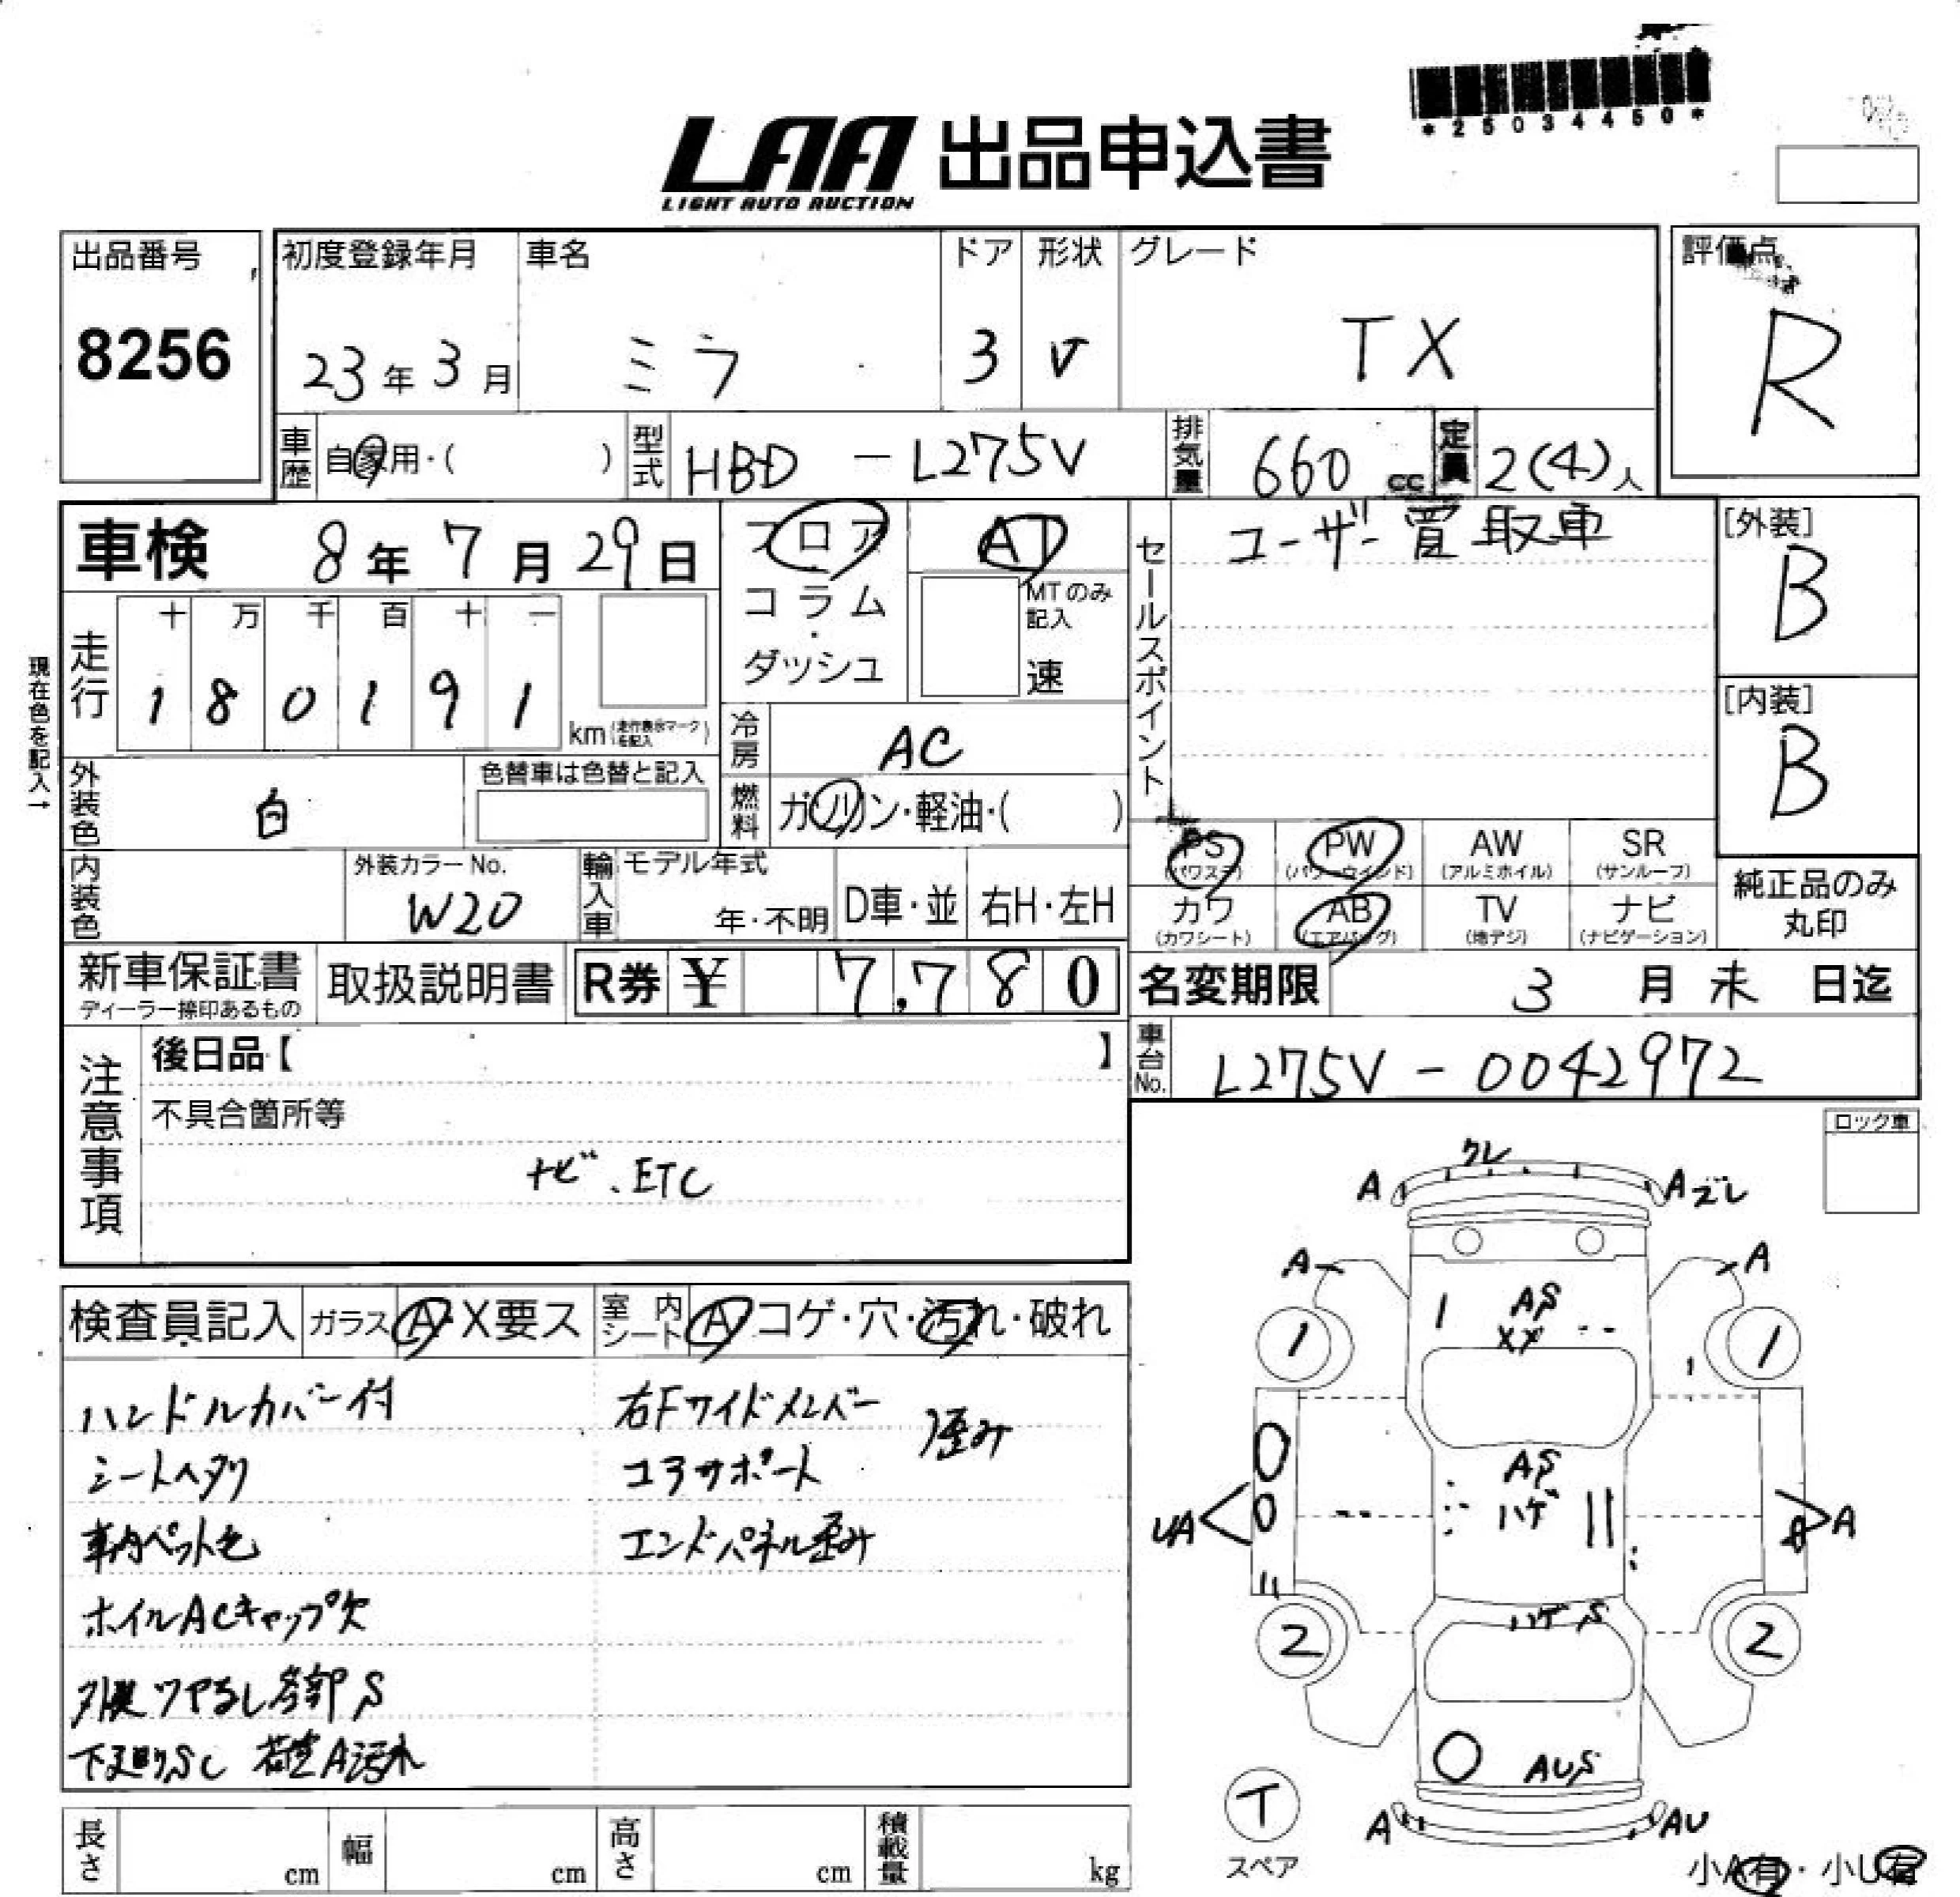 *25034450*
LAA 出品申込書
LIGHT AUTO AUCTION
出品番号
8256
初度登録年月
23年3月
車名
ミラ
ドア
3
形状
V
グレード
TX
評価点
R
車歴
自家用・( )
型式
HBD - L275V
排気量
660 cc
定員
2(4)人
車検 8年7月29日
フロア
コラム
・
ダッシュ
AT
MTのみ記入
速
セールスポイント
ユーザー買取車
[外装]
B
[内装]
B
現在色を記入→
走行
十 万 千 百 十 一
1 8 0 1 9 1
km(走行表示マークを記入)
冷房
AC
燃料
ガソリン・軽油・( )
外装色
白
色替車は色替と記入
内装色
外装カラーNo.
W20
輸入車
モデル年式
年・不明
D車・並
右H・左H
PS
(パワステ)
PW
(パワーウインド)
AW
(アルミホイル)
SR
(サンルーフ)
カワ
(カワシート)
AB
(エアバッグ)
TV
(地デジ)
ナビ
(ナビゲーション)
純正品のみ
丸印
新車保証書
ディーラー捺印あるもの
取扱説明書
R券 ¥ 7,780
名変期限 3月末日迄
車台No.
L275V - 0042972
注意事項
後日品【 】
不具合箇所等
ナビ、ETC
ロック車
検査員記入
ガラス A・X要ス
室内シート A コゲ・穴・汚れ・破れ
ハンドルカバー付
シートヘタリ
車内ペット毛
ホイルACキャップ欠
外装ツヤなし各部S
下廻りSC 荷室A汚れ
右Fサイドメンバー
コアサポート
歪み
エンドパネル歪み
ワレ
A
Aズレ
A
A
AS
XX
1
1
AS
ハゲ
UA
A
ハゲS
2
2
AUS
T
スペア
A
AU
小A有・小U有
長さ cm
幅 cm
高さ cm
積載量 kg